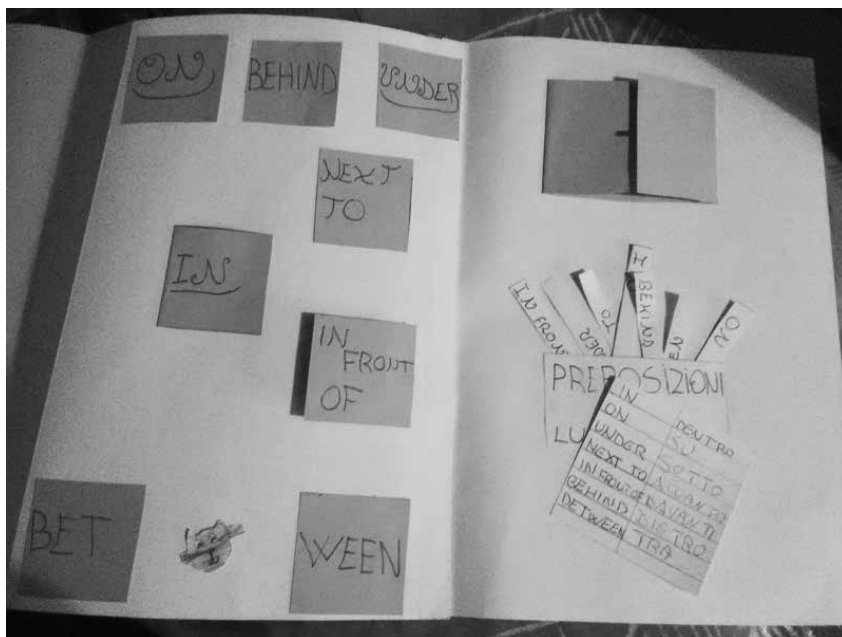 ON
BEHIND
UNDER
NEXT
TO
IN
IN
FRONT
OF
BET
WEEN
IN FRON
DER
TO
BEHIND
ON
PREPOSIZIONI
LU
IN DENTRO
ON SU
UNDER SOTTO
NEXT TO ACCANTO
IN FRONT OF DAVANTI
BEHIND DIETRO
BETWEEN TRA